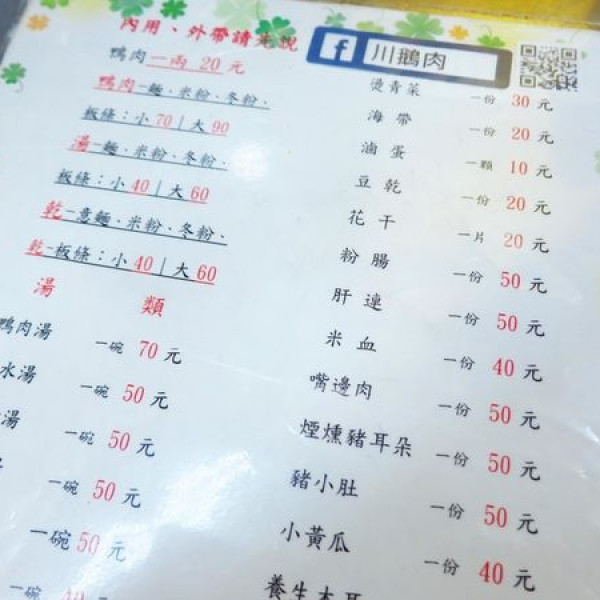 內用、外帶請先說
川鵝肉
鴨肉一兩 20 元
鴨肉-麵、米粉、冬粉、
板條：小 70 | 大 90
湯-麵、米粉、冬粉、
板條：小 40 | 大 60
乾-意麵、米粉、冬粉、
乾-板條：小 40 | 大 60
湯 類
鴨肉湯 一碗 70 元
水湯 一碗 50 元
湯 一碗 50 元
一碗 50 元
一碗 50 元
一碗
燙青菜 一份 30 元
海帶 一份 20 元
滷蛋 一顆 10 元
豆乾 一份 20 元
花干 一片 20 元
粉腸 一份 50 元
肝連 一份 50 元
米血 一份 40 元
嘴邊肉 一份 50 元
煙燻豬耳朵 一份 50 元
豬小肚 一份 50 元
小黃瓜 一份 40 元
養生木耳